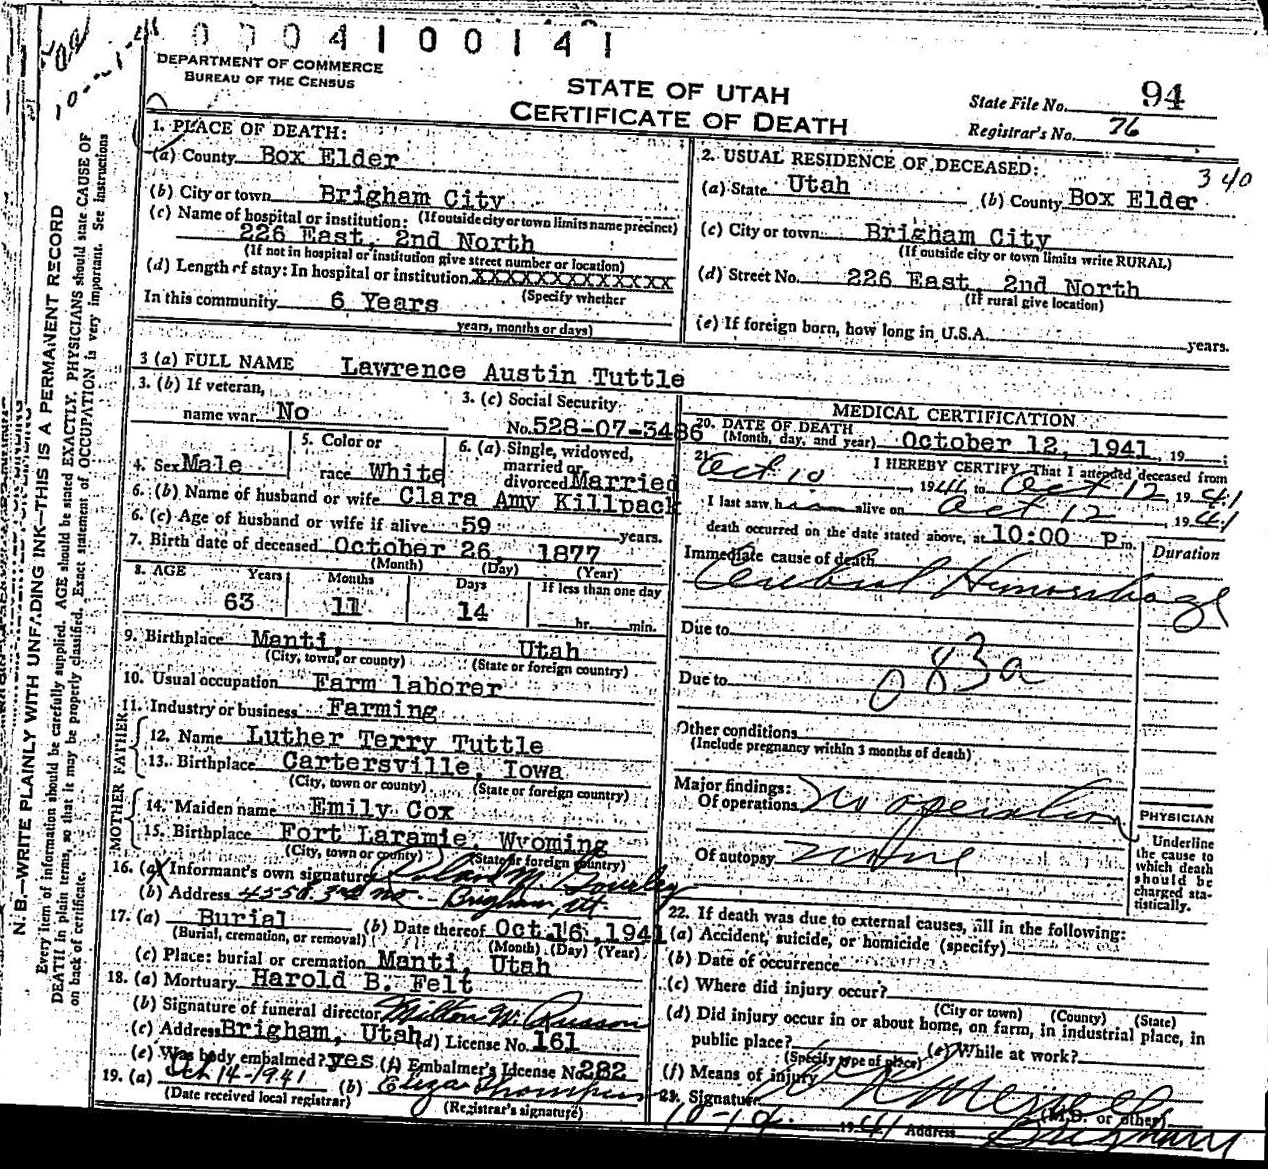 0004100141
DEPARTMENT OF COMMERCE
BUREAU OF THE CENSUS
STATE OF UTAH
CERTIFICATE OF DEATH
State File No. 94
Registrar's No. 76
1. PLACE OF DEATH:
(a) County Box Elder
(b) City or town Brigham City
(c) Name of hospital or institution: (If outside city or town limits name precinct)
226 East, 2nd North
(If not in hospital or institution give street number or location)
(d) Length of stay: In hospital or institution XXXXXXXXXXXXX
(Specify whether
In this community 6 Years
years, months or days)
2. USUAL RESIDENCE OF DECEASED:
340
(a) State Utah (b) County Box Elder
(c) City or town Brigham City
(If outside city or town limits write RURAL)
(d) Street No. 226 East, 2nd North
(If rural give location)
(e) If foreign born, how long in U.S.A. years.
3 (a) FULL NAME Lawrence Austin Tuttle
3. (b) If veteran,
name war No
3. (c) Social Security
No. 528-07-3486
4. Sex Male
5. Color or
race White
6. (a) Single, widowed,
married or
divorced Married
6. (b) Name of husband or wife Clara Amy Killpack
6. (c) Age of husband or wife if alive 59 years.
7. Birth date of deceased October 26, 1877
(Month) (Day) (Year)
8. AGE Years Months Days If less than one day
63 11 14 hr. min.
9. Birthplace Manti, Utah
(City, town, or county) (State or foreign country)
10. Usual occupation Farm laborer
11. Industry or business Farming
FATHER
12. Name Luther Terry Tuttle
13. Birthplace Cartersville, Iowa
(City, town or county) (State or foreign country)
MOTHER
14. Maiden name Emily Cox
15. Birthplace Fort Laramie, Wyoming
(City, town or county) (State or foreign country)
16. (a) Informant's own signature
(b) Address 455 3rd no - Brigham, Ut.
17. (a) Burial (b) Date thereof Oct. 16, 1941
(Burial, cremation, or removal) (Month) (Day) (Year)
(c) Place: burial or cremation Manti, Utah
18. (a) Mortuary Harold B. Felt
(b) Signature of funeral director Milton W.
(c) Address Brigham, Utah (d) License No. 161
(e) Was body embalmed? yes (f) Embalmer's License No. 282
19. (a) Oct 14-1941 (b) Eliza Thompson
(Date received local registrar) (Registrar's signature)
MEDICAL CERTIFICATION
20. DATE OF DEATH
(Month, day, and year) October 12, 1941, 19 ;
21. I HEREBY CERTIFY, That I attended deceased from
Oct 10, 1941 to Oct 12, 1941
I last saw him alive on Oct 12, 1941
death occurred on the date stated above, at 10:00 P m.
Immediate cause of death Duration
Cerebral Hemorrhage
Due to
083a
Due to
Other conditions
(Include pregnancy within 3 months of death)
Major findings:
Of operations No operation
Of autopsy None
PHYSICIAN
Underline
the cause to
which death
should be
charged sta-
tistically.
22. If death was due to external causes, fill in the following:
(a) Accident, suicide, or homicide (specify)
(b) Date of occurrence
(c) Where did injury occur?
(City or town) (County) (State)
(d) Did injury occur in or about home, on farm, in industrial place, in
public place? (e) While at work?
(Specify type of place)
(f) Means of injury
23. Signature
(M.D. or other)
1941 Address Brigham
N. B.—WRITE PLAINLY WITH UNFADING INK—THIS IS A PERMANENT RECORD
Every item of information should be carefully supplied. AGE should be stated EXACTLY. PHYSICIANS should state CAUSE OF
DEATH in plain terms, so that it may be properly classified. Exact statement of OCCUPATION is very important. See instructions
on back of certificate.